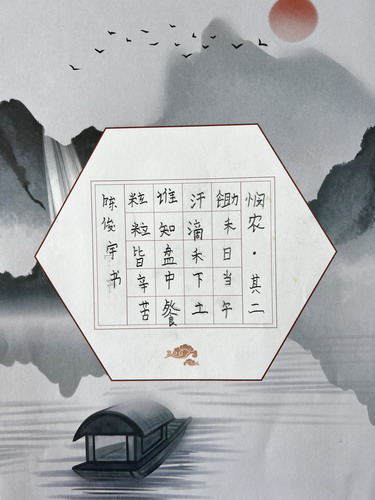 悯农·其二
锄禾日当午
汗滴禾下土
谁知盘中餐
粒粒皆辛苦
陈俊宇书